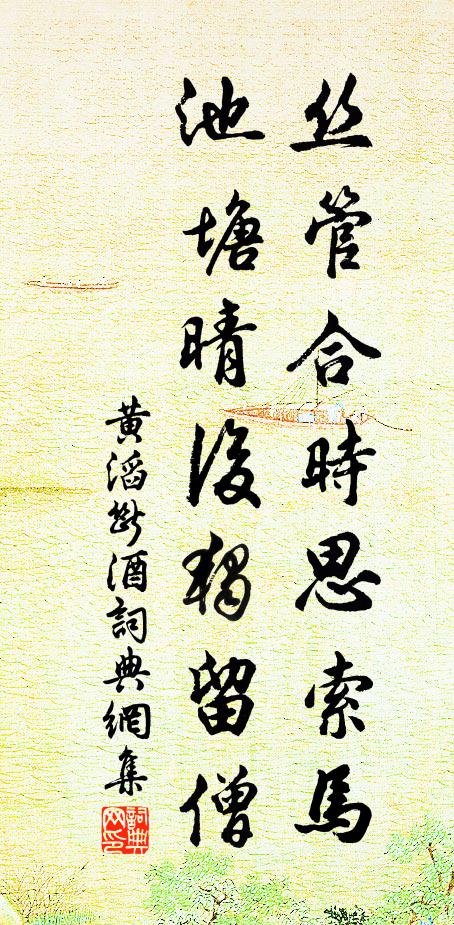 丝管合時思索馬
池塘晴後獨留僧
黄滔斷酒詞典網集
詞典网印